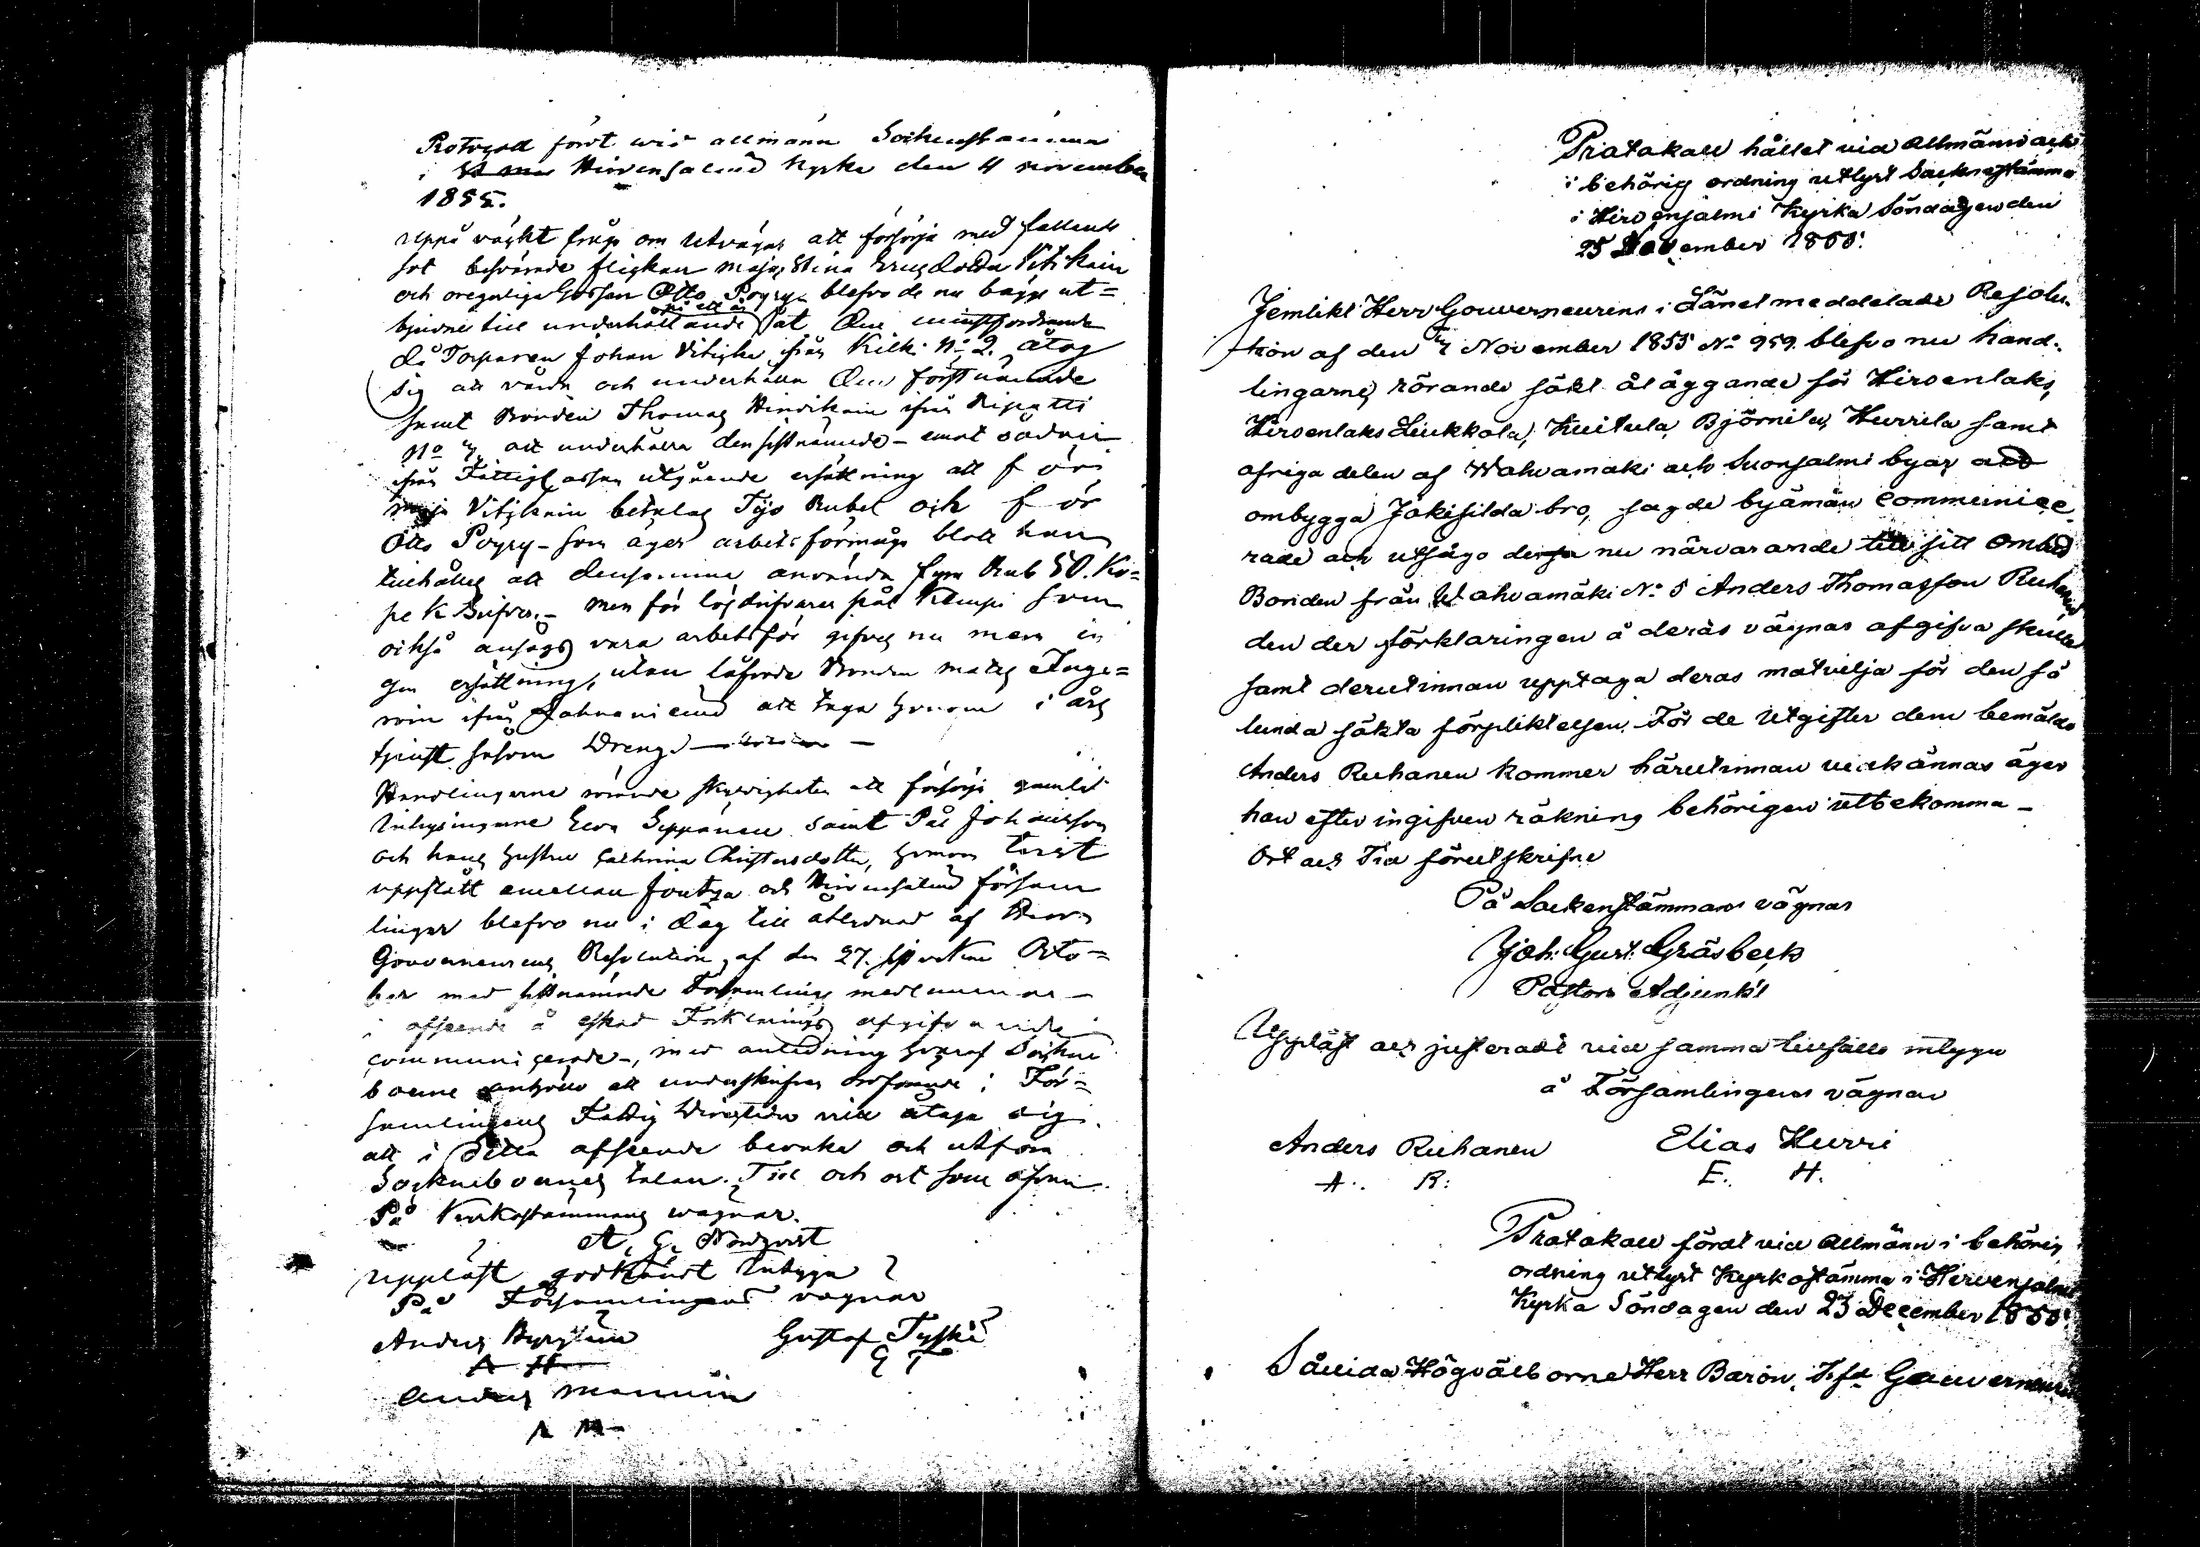 Protocoll fördt wid allmänn Sockenstämma
i Hirvensalmi Kyrka den 4 november
1855.
uppå väckt fråga om utvägar att försörja med fallande
sot besvärade flickan Maja Stina Ericsdotter Vitikain
och oregerliga Gossen Otto Pöyry blefvo de nu bägge ut=
bjudne till underhållande åt den minstfordrande
då Torparen Johan Vitikain från Kilki No 2. åtog
sig att vårda och underhålla den förstnämnde
samt Bonden Thomas Hindrikain ifrån Ripatti
No 7 att underhålla den sistnämnde - emot sådan
ifrån Fattigkassan utgående ersättning att för
Maja Vitikain betalas Tijo Rubel och för
Otto Pöyry - som äger arbetsförmåga blott han
tillhålles att densamma använda fyra Rub 50. Ko=
pek Silfver. - men för lösdrifvaren Pål Kemppi som
också ansågs vara arbetsför gifves nu mera in
gen ersättning, utan låfvade Bonden Mats Inge=
roin ifrån Lahnaniemi att taga honom i års
tjenst såsom Dreng. -
Handlingarne rörande skyldigheten att försörja gamla
Inhysingarne Eva Seppänen samt Pål Johansson
och hans hustru Cathrina Christersdotter, hvarom tvist
uppstått emellan Joutsa och Hirvensalmi försam
lingar blefvo nu i dag till åtlydnad af Herr
Gouverneurens Resolution af den 27. sistvikne Octo=
ber med sistnämnde Församlings medlemmar -
i afseende å äskad Förklarings afgifvande
communicerade -, med anledning hvaraf Socken
boerne anhöllo att underskrifven Ordförande i För=
samlingens Fattig Direction ville åtaga sig
att i detta afseende bevaka och utföra
Sockneboernes talan. Tid och ort som ofvan.
På Kyrkostämmans wägnar.
A. G. Nordqvist
uppläst godkändt intyga
På Församlingens vägnar
Anders Gustaf Tyski
A H G T
Anders Manninen
A M
Protokoll hållet vid Allmänn och
i behörig ordning utlyst Sockenstämma
i Hirvensalmi Kyrka Söndagen den
25 November 1855.
Jemlikt Herr Gouverneurens i Länet meddelade Resolu-
tion af den 7 November 1855 No 959. blefvo nu hand-
lingarne, rörande sökt åläggande för Hirvenlaks,
Hirvenlaks Leukkola, Kuitula, Björnilä, Hurrila samt
öfriga delen af Wahvamäki och Suonsalmi byar att
ombygga Jokisilda bro, sagde byämän communice-
rade och utsågo desse nu närvarande till sitt ombud
Bonden från Wahvamäki No 5 Anders Thomasson Ruhanen
den der förklaringen å deras vägnar afgifva skulle
samt derutinnan upptaga deras motvilja för den så
lunda sökta förpliktelsen. För de utgifter dem bemälde
Anders Ruhanen kommer härutinnan vidkännas äger
han efter ingifven räkning behörigen utbekomma -
Ort och Tid förutskrifne
På Sockenstämmans vägnar
Joh: Gust: Gråsbeck
Pastors Adjunkt
Uppläst och justeradt vid samma tillfälle intyga
å Församlingens vägnar
Anders Ruhanen Elias Hurri
A. R: E. H.
Protokoll fördt vid Allmänn i behörig
ordning utlyst Kyrkostämma i Hirvensalmi
Kyrka Söndagen den 23 December 1855.
Såvida Högvälborne Herr Baron, Gouverneuren